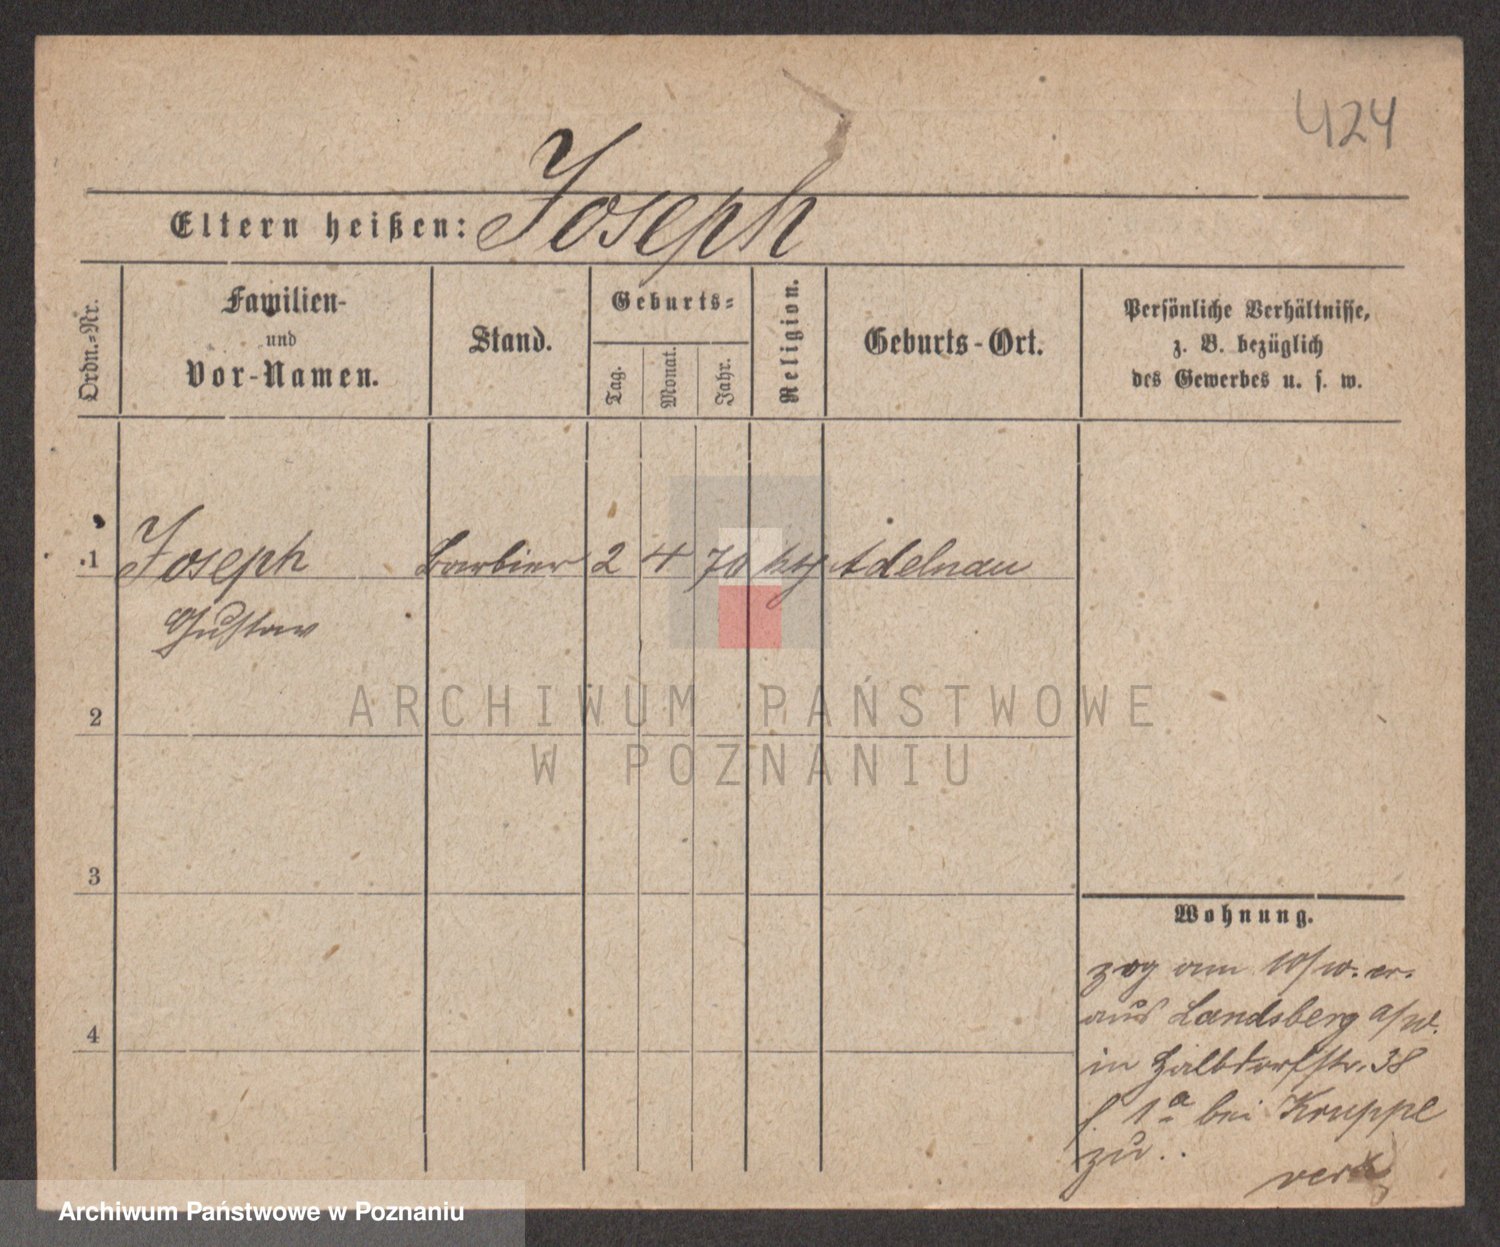 424
Eltern heißen: Joseph
Ordn.-Nr.
Familien-
und
Vor-Namen.
Stand.
Geburts-
Tag.
Monat.
Jahr.
Religion.
Geburts-Ort.
Persönliche Verhältnisse,
z. B. bezüglich
des Gewerbes u. s. w.
1 Joseph Barbier 2 4 70 Adelnau
Gustav
2
3
4
Wohnung.
zog am 10/10. cr.
aus Landsberg a/W.
in Halbdorfstr. 38
1a bei Kruppe
zu..
ARCHIWUM PAŃSTWOWE
W POZNANIU
Archiwum Państwowe w Poznaniu